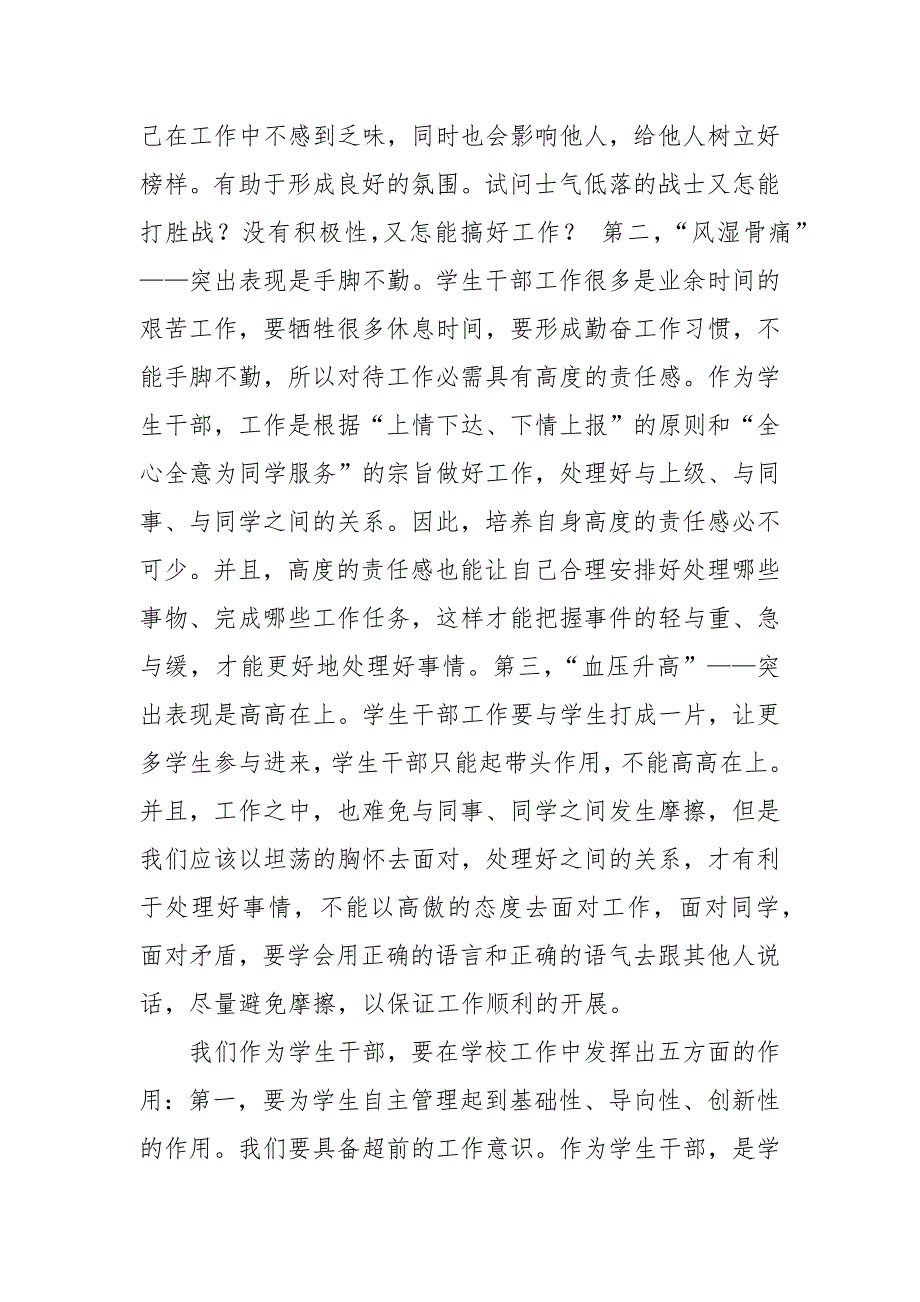 己在工作中不感到乏味，同时也会影响他人，给他人树立好
榜样。有助于形成良好的氛围。试问士气低落的战士又怎能
打胜战？没有积极性，又怎能搞好工作？ 第二，“风湿骨痛”
——突出表现是手脚不勤。学生干部工作很多是业余时间的
艰苦工作，要牺牲很多休息时间，要形成勤奋工作习惯，不
能手脚不勤，所以对待工作必需具有高度的责任感。作为学
生干部，工作是根据“上情下达、下情上报”的原则和“全
心全意为同学服务”的宗旨做好工作，处理好与上级、与同
事、与同学之间的关系。因此，培养自身高度的责任感必不
可少。并且，高度的责任感也能让自己合理安排好处理哪些
事物、完成哪些工作任务，这样才能把握事件的轻与重、急
与缓，才能更好地处理好事情。第三，“血压升高”——突
出表现是高高在上。学生干部工作要与学生打成一片，让更
多学生参与进来，学生干部只能起带头作用，不能高高在上。
并且，工作之中，也难免与同事、同学之间发生摩擦，但是
我们应该以坦荡的胸怀去面对，处理好之间的关系，才有利
于处理好事情，不能以高傲的态度去面对工作，面对同学，
面对矛盾，要学会用正确的语言和正确的语气去跟其他人说
话，尽量避免摩擦，以保证工作顺利的开展。
我们作为学生干部，要在学校工作中发挥出五方面的作
用：第一，要为学生自主管理起到基础性、导向性、创新性
的作用。我们要具备超前的工作意识。作为学生干部，是学